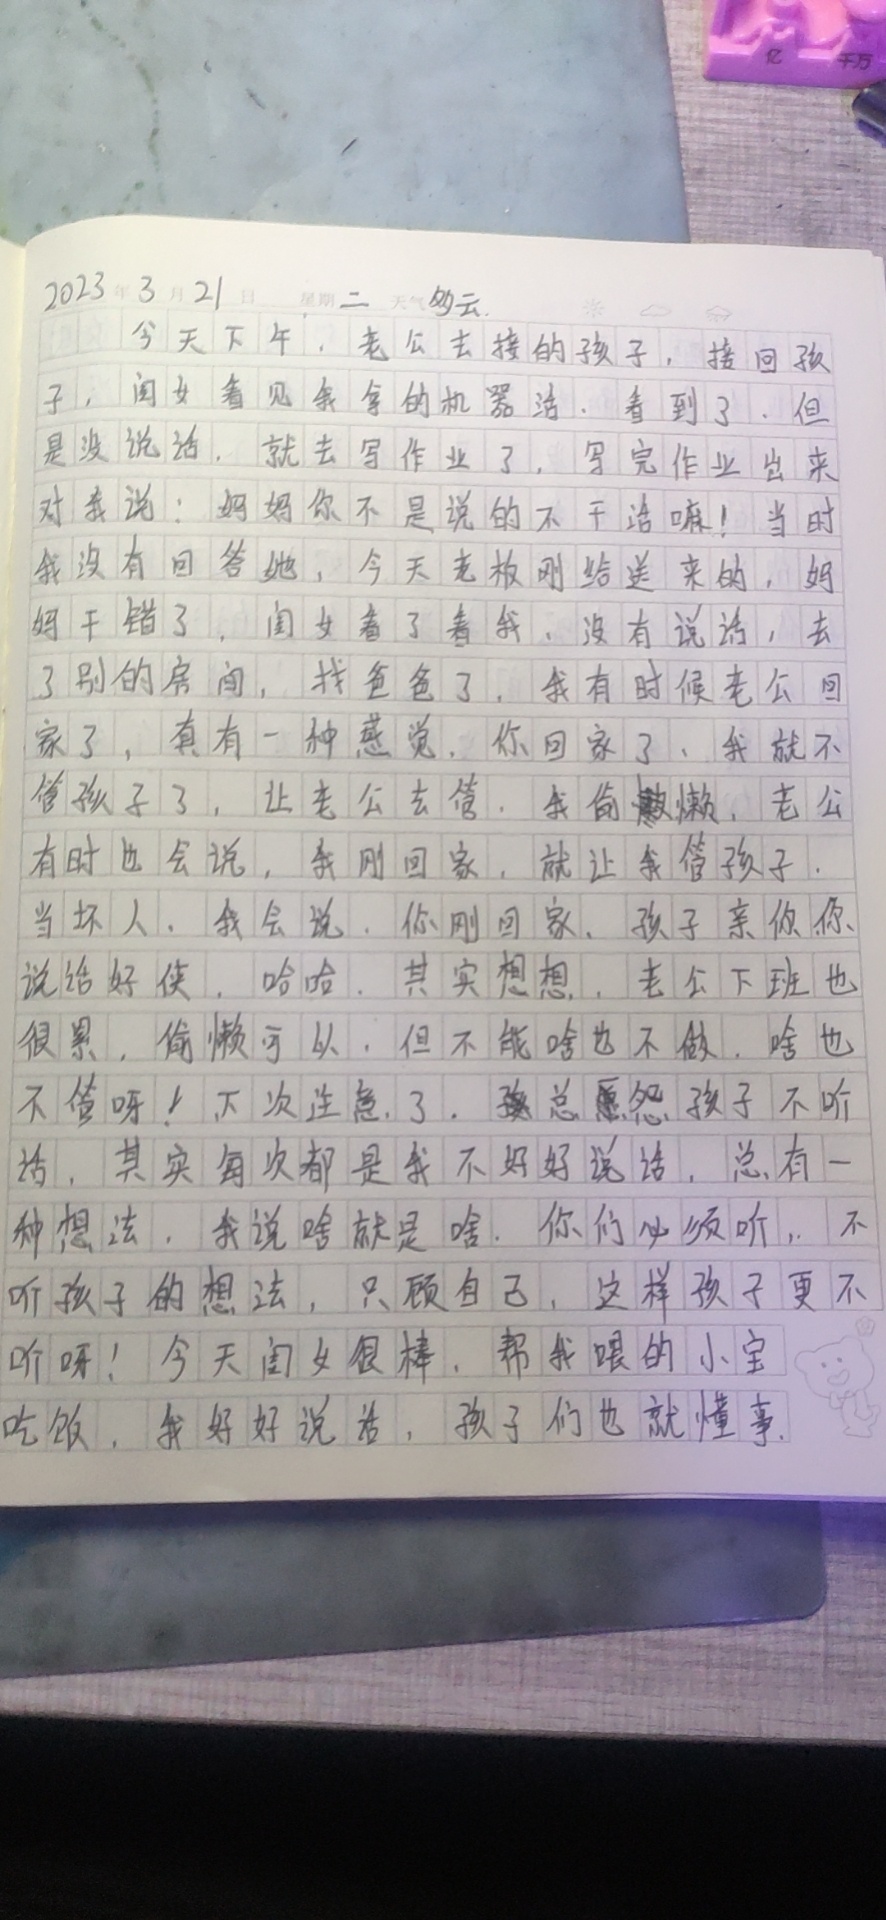 亿 千万
2023年3月21日 星期二 天气多云.
今天下午,老公去接的孩子,接回孩
子,闺女看见我拿的机器活.看到了.但
是没说话.就去写作业了,写完作业出来
对我说:妈妈你不是说的不干活嘛!当时
我没有回答她,今天老板刚给送来的,妈
妈干错了,闺女看了看我,没有说话,去
了别的房间,找爸爸了.我有时候老公回
家了,真有一种感觉.你回家了、我就不
管孩子了,让老公去管.我偷懒,老公
有时也会说,我刚回家,就让我管孩子.
当坏人.我会说.你刚回家、孩子亲你你
说话好使,哈哈.其实想想,老公下班也
很累,偷懒可以.但不能啥也不做.啥也
不管呀!下次注意了.总怨孩子不听
话,其实每次都是我不好好说话,总有一
种想法.我说啥就是啥.你们必须听,.不
听孩子的想法,只顾自己,这样孩子更不
听呀!今天闺女很棒.帮我喂的小宝
吃饭,我好好说话,孩子们也就懂事.